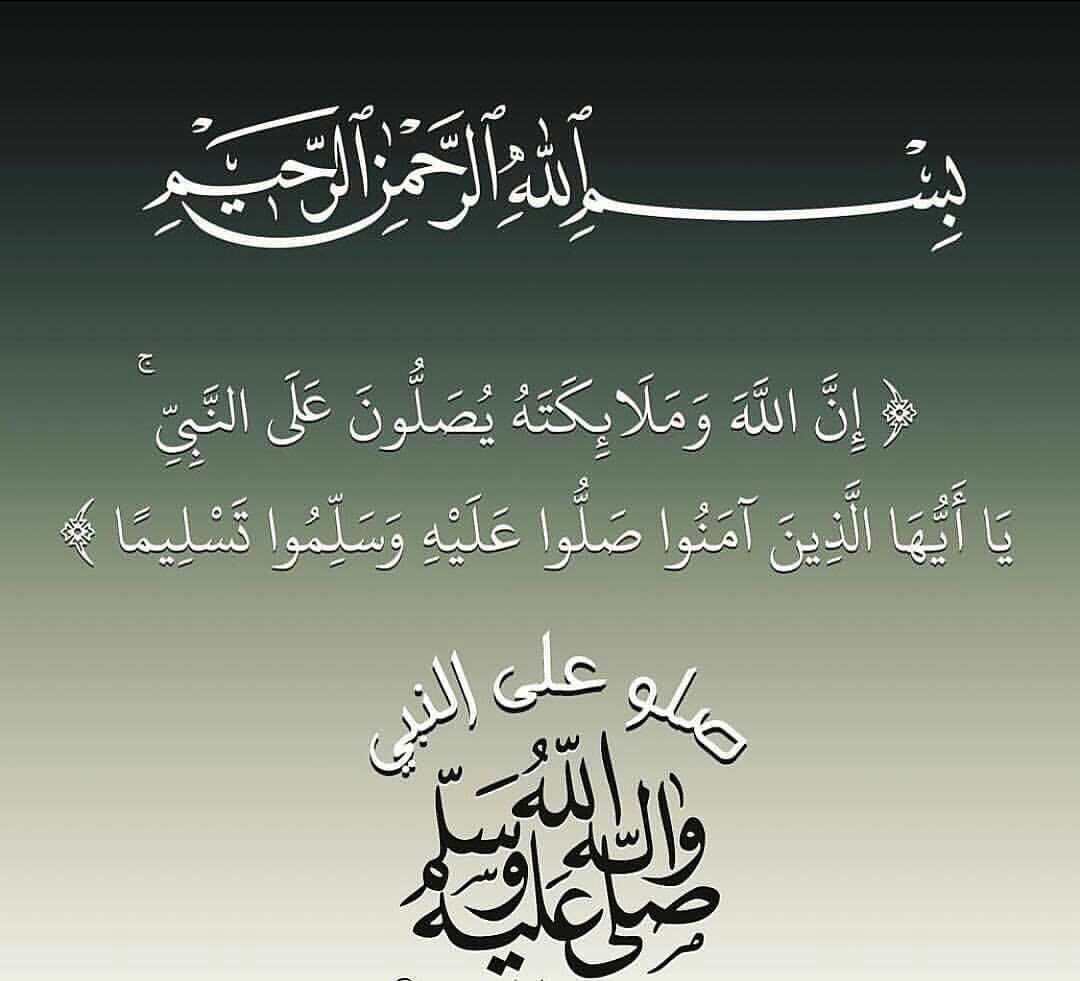 بِسْمِ ٱللَّهِ ٱلرَّحْمَٰنِ ٱلرَّحِيمِ
﴿ إِنَّ اللَّهَ وَمَلَائِكَتَهُ يُصَلُّونَ عَلَى النَّبِيِّ ۚ
يَا أَيُّهَا الَّذِينَ آمَنُوا صَلُّوا عَلَيْهِ وَسَلِّمُوا تَسْلِيمًا ﴾
صلو على النبي
صلى الله عليه وآله وسلم